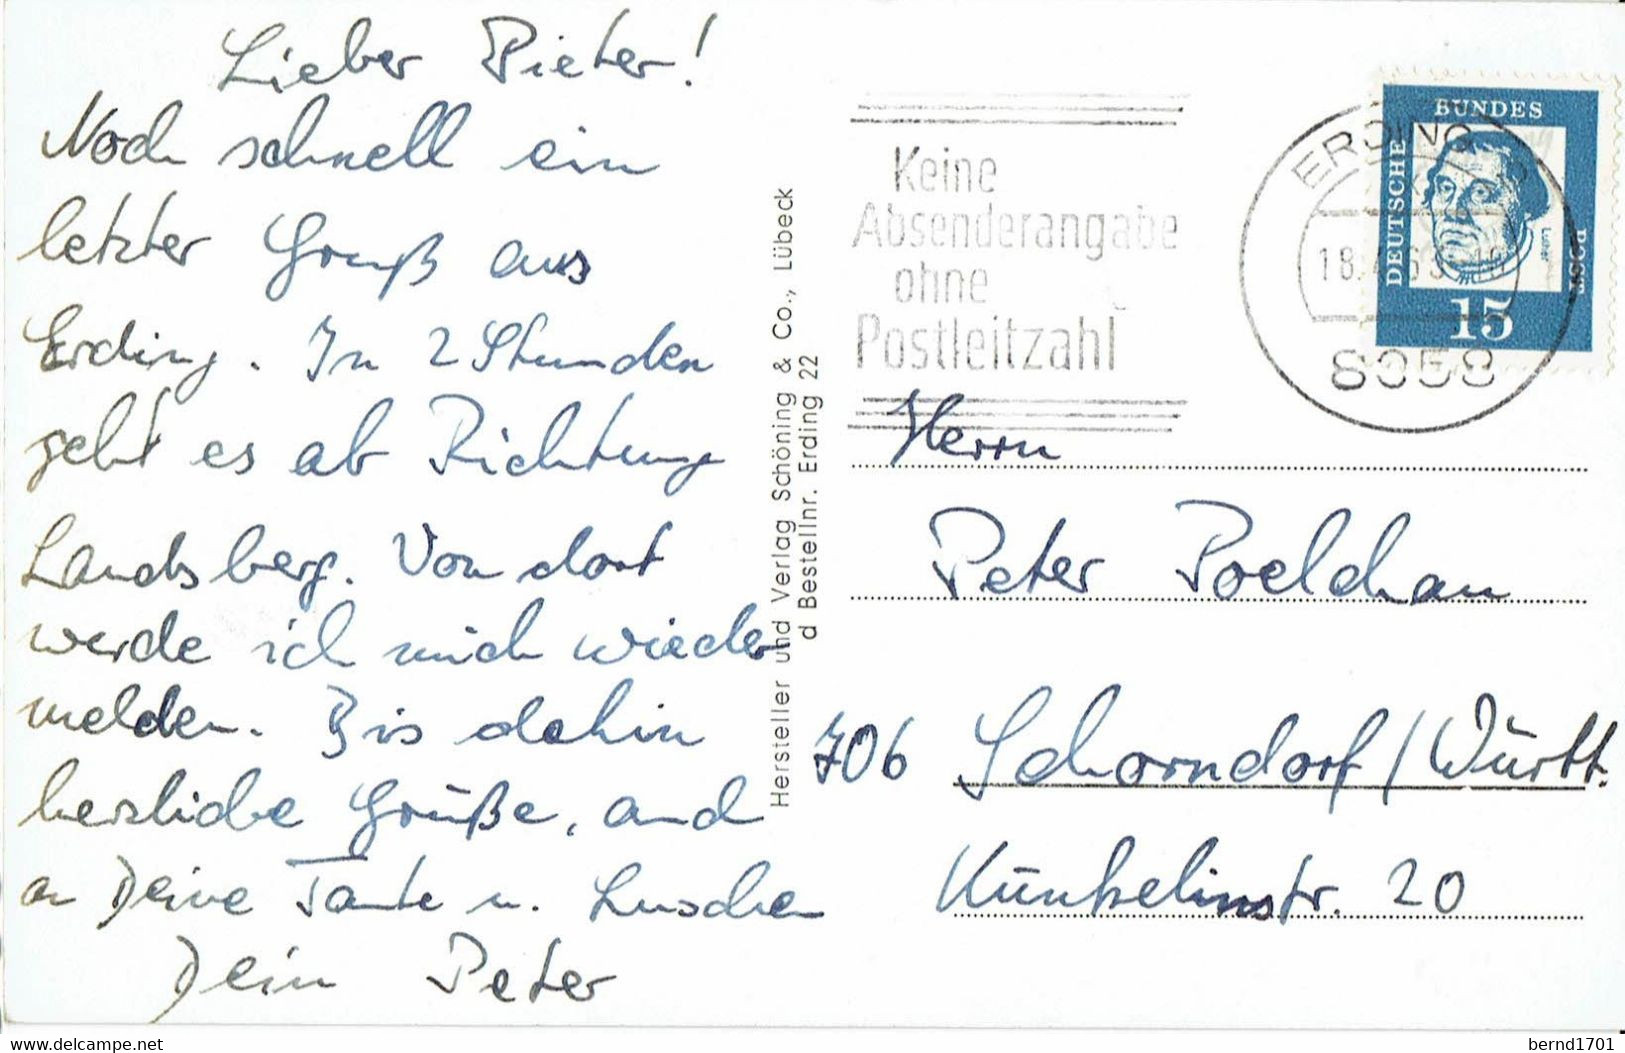 Lieber Pieter!
Noch schnell ein
letzter Gruß aus
Erding. In 2 Stunden
geht es ab Richtung
Landsberg. Von dort
werde ich mich wieder
melden. Bis dahin
herzliche Grüße, auch
an Deine Tante u.
Dein Peter
Hersteller und Verlag Schöning & Co., Lübeck
d Bestellnr. Erding 22
Keine
Absenderangabe
ohne
Postleitzahl
ERDING
8058
DEUTSCHE
BUNDES
POST
Luther
15
Herrn
Peter Poelchau
706 Schorndorf/Württ.
Künkelinstr. 20
www.delcampe.net
bernd1701